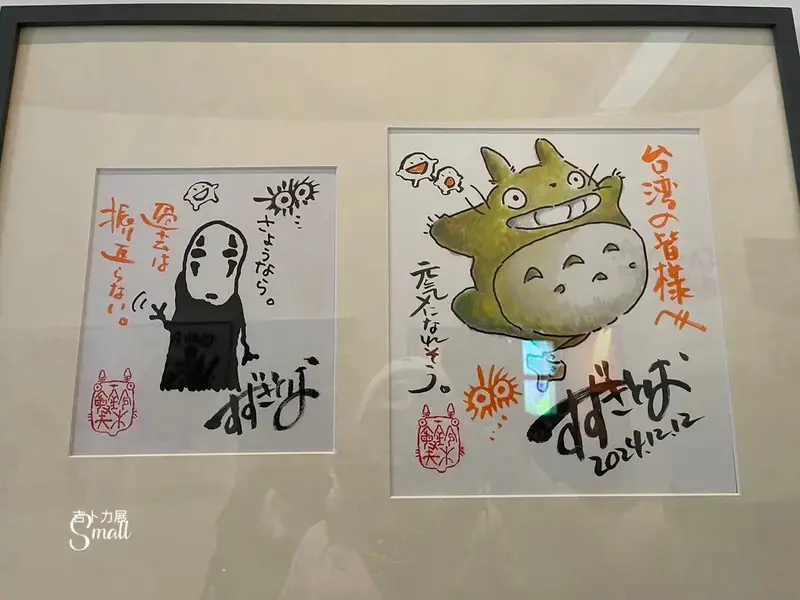 さようなら。
過去は
振り返らない。
すずきとしお
台湾の皆様へ
元気になれそう。
すずきとしお
2024.12.12
吉卜力展
Small